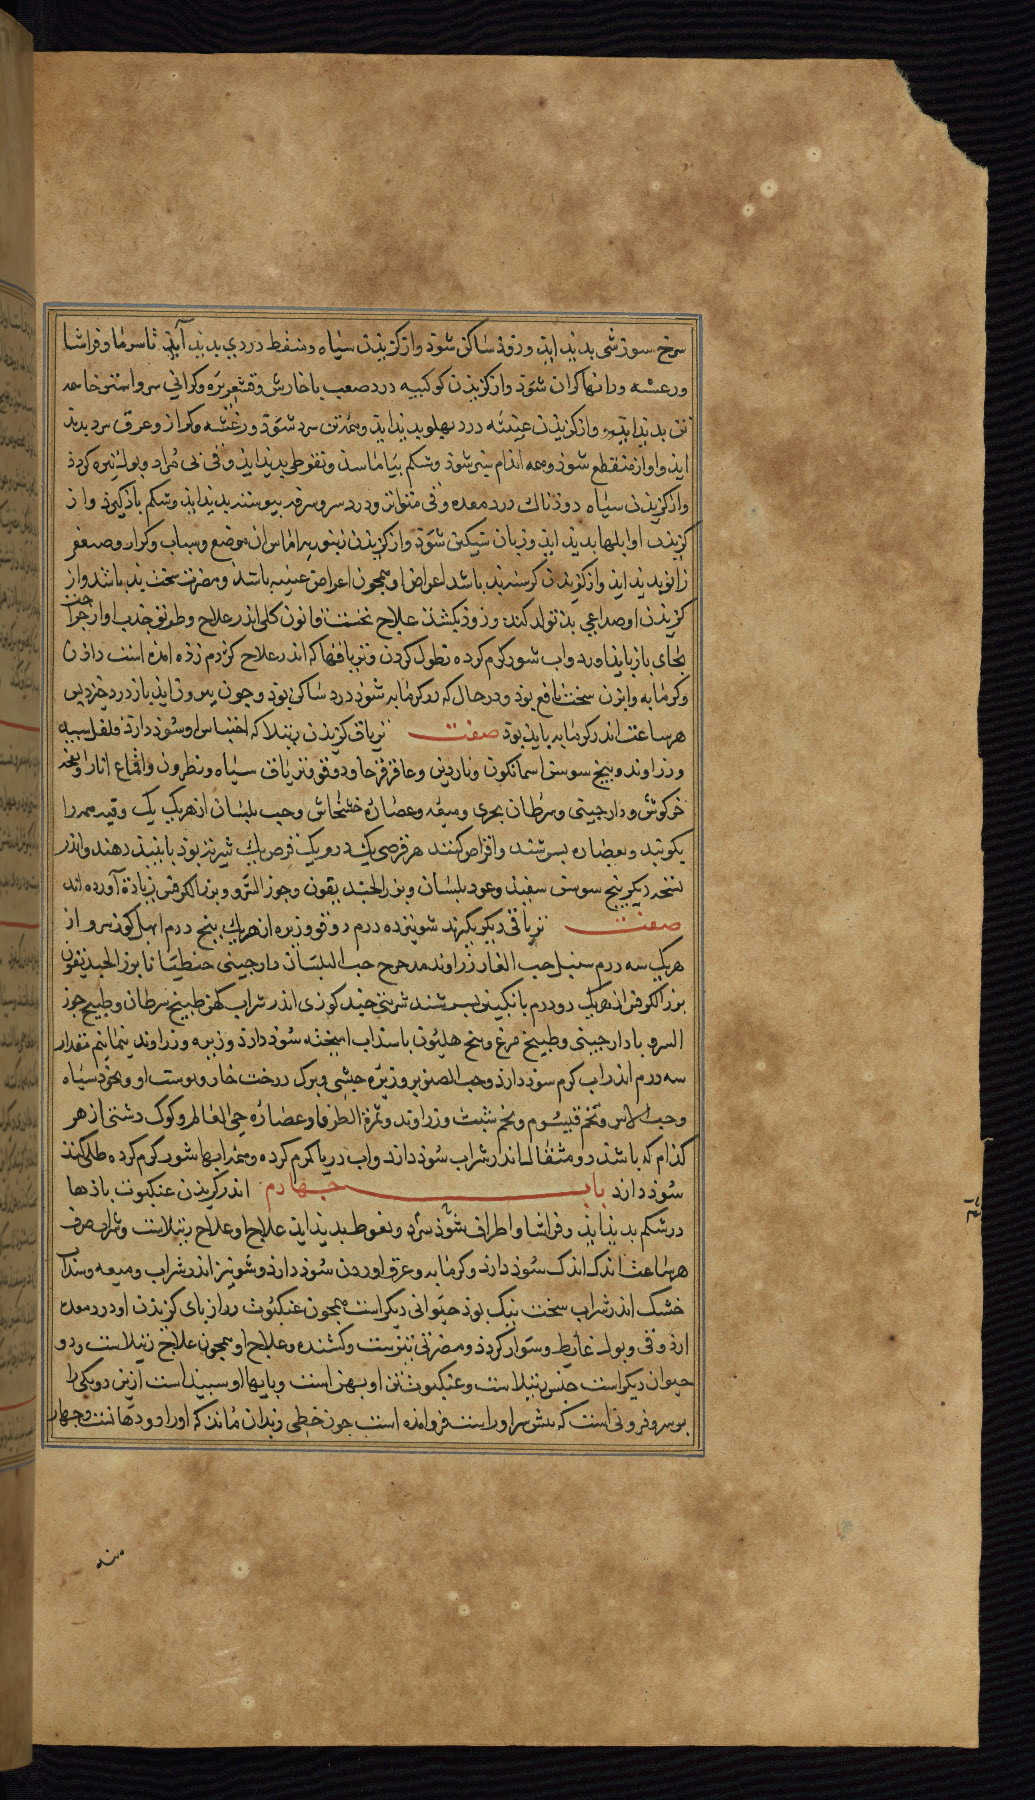 سرخ سوزشی بدید اید و زود ساکن شود و از کزیدن سیاه و منقط دردی بدید آید با سرما و فراشا
و رعشه و رانها کران شود و از کزیدن کوکبیه درد صعب با خارش و قشعریره و کرانی سر و استرخا همه
تن بدید اید و از کزیدن عنبیه درد بهلو بدید اید و همه تن سرد شود و رعشه و کزاز و عرق سرد بدید
اید و اواز منقطع شود و همه اندام شود و شکم بیاماسد و نغوط بدید اید و قی بی مراد و بول تیره کردد
و از کزیدن سیاه دودناک درد معده و قی متواتر و درد سر و سرفه بیوسته بدید اید و شکم باز کیرد و از
کزیدن او ابلها بدید اید و زبان سنکین شود و از کزیدن زنبوریه اماس ان موضع و سبات و کزاز و ضعف
زانو بدید اید و از کزیدن کرسنه بد باشد اعراض او همجون اعراض عنبیه باشد و مضرت سخت بد باشد و از
کزیدن او صداعی بد تولد کند و زود بکشد علاج نخست قانون کلی اندر علاج و طریق جذب او از جراحت
بجای باز باید اورد و اب شور کرم کرده نطول کردن و تریاقها که اندر علاج کزدم زده امده است دادن
و کرمابه و ابزن سخت نافع بود و در حال که در کرمابه شود درد ساکن بود و جون بیرون اید باز درد خیزد بس
هر ساعت اندر کرمابه باید بود صفت تریاق کزیدن رتیلا که احتباس او سود دارد فلفل سبید
و زراوند و بیخ سوسن اسمانکون و ناردین و عاقرقرحا و دوقو و تریاق سیاه و نطرون و اقماع انار و بنیر مایه
خرکوش و دارجینی و سرطان بحری و میعه و عصاره خشخاش و حب بلسان از هر یک یک وقیه همه را
بکوبند و بعصاره بسرشند و اقراص کنند هر قرصی یک درم و یک قرص یک شربت بود با نبیذ دهند و اندر
نسخه دیکر بیخ سوسن سفید و عود بلسان و بزر الحندقوقی و جوز السرو و بزر الکرفس زیادة آورده اند
صفت تریاقی دیکر بکیرند شونیز ده درم دوقو و زیره از هر یک بنج درم ابهل کوز سرو از
هر یک سه درم سنبل حب الغار زراوند مدحرج حب البلسان دارجینی جنطیانا بزر الحندقوقی
بزر الکرفس از هر یک دو درم بانکبین بسرشند شربتی جند کوزی اندر شراب کهن طبیخ سرطان و طبیخ جوز
السرو با دارجینی و طبیخ مرغ و بیخ هلیون با سداب امیخته سود دارد و زیره و زراوند نیمانیم مقدار
سه درم اندر اب کرم سود دارد و حب الصنوبر و زیره حبشی و برک درخت خار و بوست او و نخود سیاه
و حب الاس و تخم قیسوم و تخم شبت و زراوند و ثمرة الطرفا و عصاره حی العالم و کوک دشتی از هر
کدام که باشد دو مثقال اندر شراب سود دارد و اب دریا کرم کرده و همه ابها شور کرم کرده طلی کنند
سود دارد باب جهارم اندر کزیدن عنکبوت بادها
در شکم بدید اید و فراشا و اطراف شود سرد و نعوظ بدید اید علاج او علاج رتیلاست و شراب صرف
هر ساعت اندک اندک سود دارد و کرمابه و عرق اوردن سود دارد و شونیز اندر شراب و میعه و سداب
خشک اندر شراب سخت نیک بود حیوانی دیکر است همجون عنکبوت دراز بای کزیدن او درد معده
ارد و قی و بول غایط دشوار کردد و مضرتی بترست و کشنده و علاج او همجون علاج رتیلاست و دو
حیوان دیکر است جنس رتیلاست و عنکبوت تن او بهن است و بایها او سبید است ازین دو یکی را
بر سر و فرونی است که بیش سر او راست فرو امده است جون خطی زبدان ماند که او را دو دهانست و جهار
منه